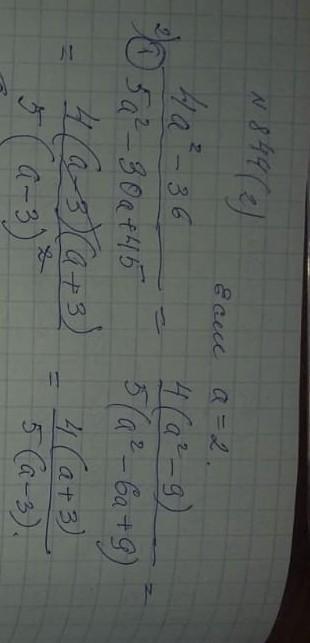 N 844(2)
Если a = 2.
2) ① (4a² - 36)/(5a² - 30a + 45) = (4(a² - 9))/(5(a² - 6a + 9)) =
= (4(a-3)(a+3))/(5(a-3)²) = (4(a+3))/(5(a-3)).